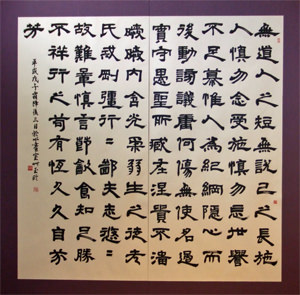 無道人之短無說己之長施
人慎勿念受施慎勿忘世譽
不足慕惟仁為紀綱隱心而
後動謗議庸何傷無使名過
實守愚聖所臧在涅貴不淄
曖曖內含光柔弱生之徒老
氏誡剛強行行鄙夫志悠悠
故難量慎言節飲食知足勝
不祥行之苟有恆久久自芬
芳
戊子霜降後三日於